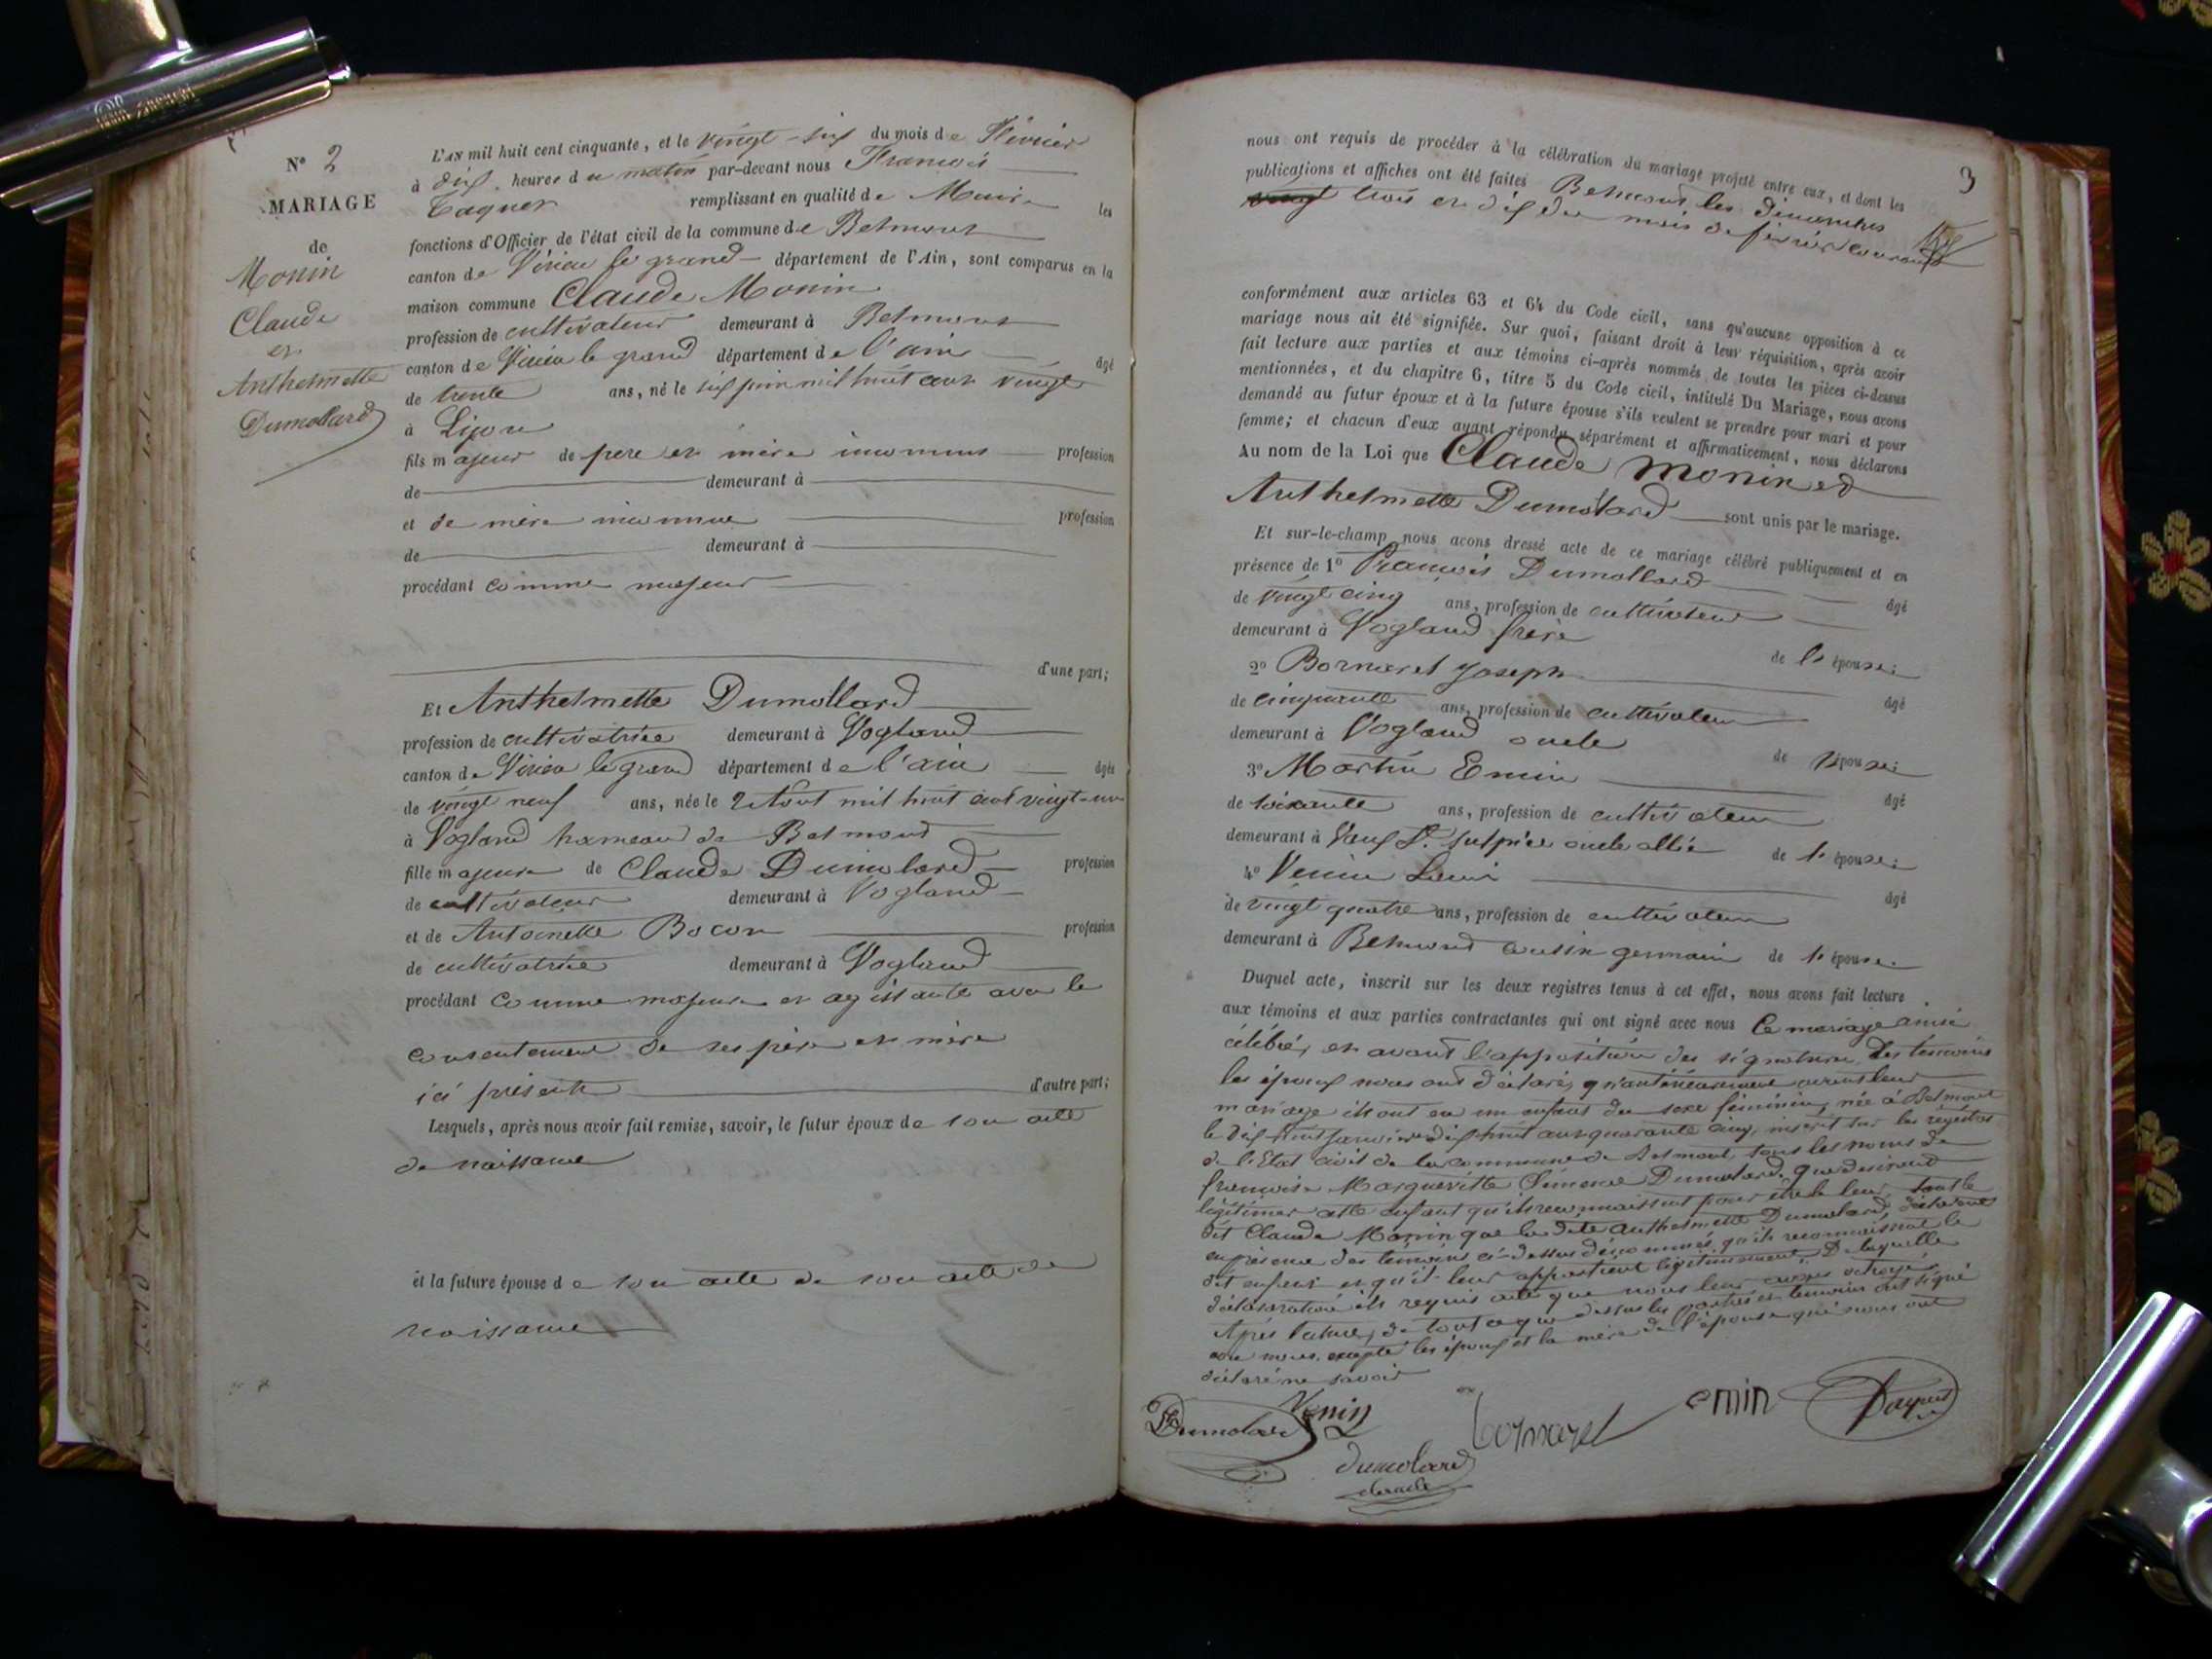 N° 2
MARIAGE
de
Monin
Claude
et
Anthelmette
Dumollard
L'AN mil huit cent cinquante, et le vingt-six du mois de Février
à dix heures du matin par-devant nous François
remplissant en qualité de Maire les
fonctions d'Officier de l'état civil de la commune de Belmont
canton de Virieu le grand département de l'Ain, sont comparus en la
maison commune Claude Monin
profession de cultivateur demeurant à Belmont
canton de Virieu le grand département de l'ain âgé
de trente ans, né le six juin mil huit cent vingt
à Lyon
fils majeur de père et mère inconnus profession
de demeurant à
et de mère inconnue profession
de demeurant à
procédant comme majeur
d'une part;
Et Anthelmette Dumollard
profession de cultivatrice demeurant à Vogland
canton de Virieu le grand département de l'ain âgée
de vingt neuf ans, née le 2 Aout mil huit cent vingt-un
à Vogland hameau de Belmont
fille majeure de Claude Dumolard profession
de cultivateur demeurant à Vogland
et de Antoinette Bocon profession
de cultivatrice demeurant à Vogland
procédant comme majeure et agissante avec le
consentement de ses père et mère
ici présents d'autre part;
Lesquels, après nous avoir fait remise, savoir, le futur époux de son acte
de naissance
et la future épouse de son acte de son acte de
naissance
3
nous ont requis de procéder à la célébration du mariage projeté entre eux, et dont les
publications et affiches ont été faites Belmont les dimanches
trois et dix du mois de février courant
conformément aux articles 63 et 64 du Code civil, sans qu'aucune opposition à ce
mariage nous ait été signifiée. Sur quoi, faisant droit à leur réquisition, après avoir
fait lecture aux parties et aux témoins ci-après nommés de toutes les pièces ci-dessus
mentionnées, et du chapitre 6, titre 5 du Code civil, intitulé Du Mariage, nous avons
demandé au futur époux et à la future épouse s'ils veulent se prendre pour mari et pour
femme; et chacun d'eux ayant répondu séparément et affirmativement, nous déclarons
Au nom de la Loi que Claude Monin et
Anthelmette Dumolard sont unis par le mariage.
Et sur-le-champ nous avons dressé acte de ce mariage célébré publiquement et en
présence de 1° François Dumollard âgé
de vingt cinq ans, profession de cultivateur
demeurant à Vogland frère de l'épouse;
2° Bornarel Joseph âgé
de cinquante ans, profession de cultivateur
demeurant à Vogland oncle de l'épouse;
3° Martin Emin âgé
de soixante ans, profession de cultivateur
demeurant à Vaux St. Sulpice oncle allié de l'épouse;
4° Venin Louis âgé
de vingt quatre ans, profession de cultivateur
demeurant à Belmont cousin germain de l'épouse.
Duquel acte, inscrit sur les deux registres tenus à cet effet, nous avons fait lecture
aux témoins et aux parties contractantes qui ont signé avec nous Ce mariage ainsi
célébré, et avant l'apposition des signatures des temoins
les époux nous ont déclaré, qu'antérieurement leur
mariage ils ont eu un enfant du sexe féminin, née à Belmont
le dix huit janvier dix huit cent quarante cinq, inscrit sur les régistres
de l'Etat civil de la commune de Belmont, sous les noms de
françoise Margueritte Dumolard. que desirant
légitimer cette enfant qu'ils reconnaissent pour être le leur, tant le
dit Claude Monin que la dite Anthelmette Dumolard déclarent
en présence des témoins ci-dessus dénommés, qu'ils reconnaissent le
dit enfant et qu'il leur appartient légitimement. De laquelle
déclaration ils requis acte que nous leur avons octroyé.
Après lecture, de tout ce que dessus les parties et temoins ont signé
avec nous, excepté les époux et la mère de l'épouse qui nous ont
déclaré ne savoir
Dumolard
Venin
bornarel
emin
dumolard
claude